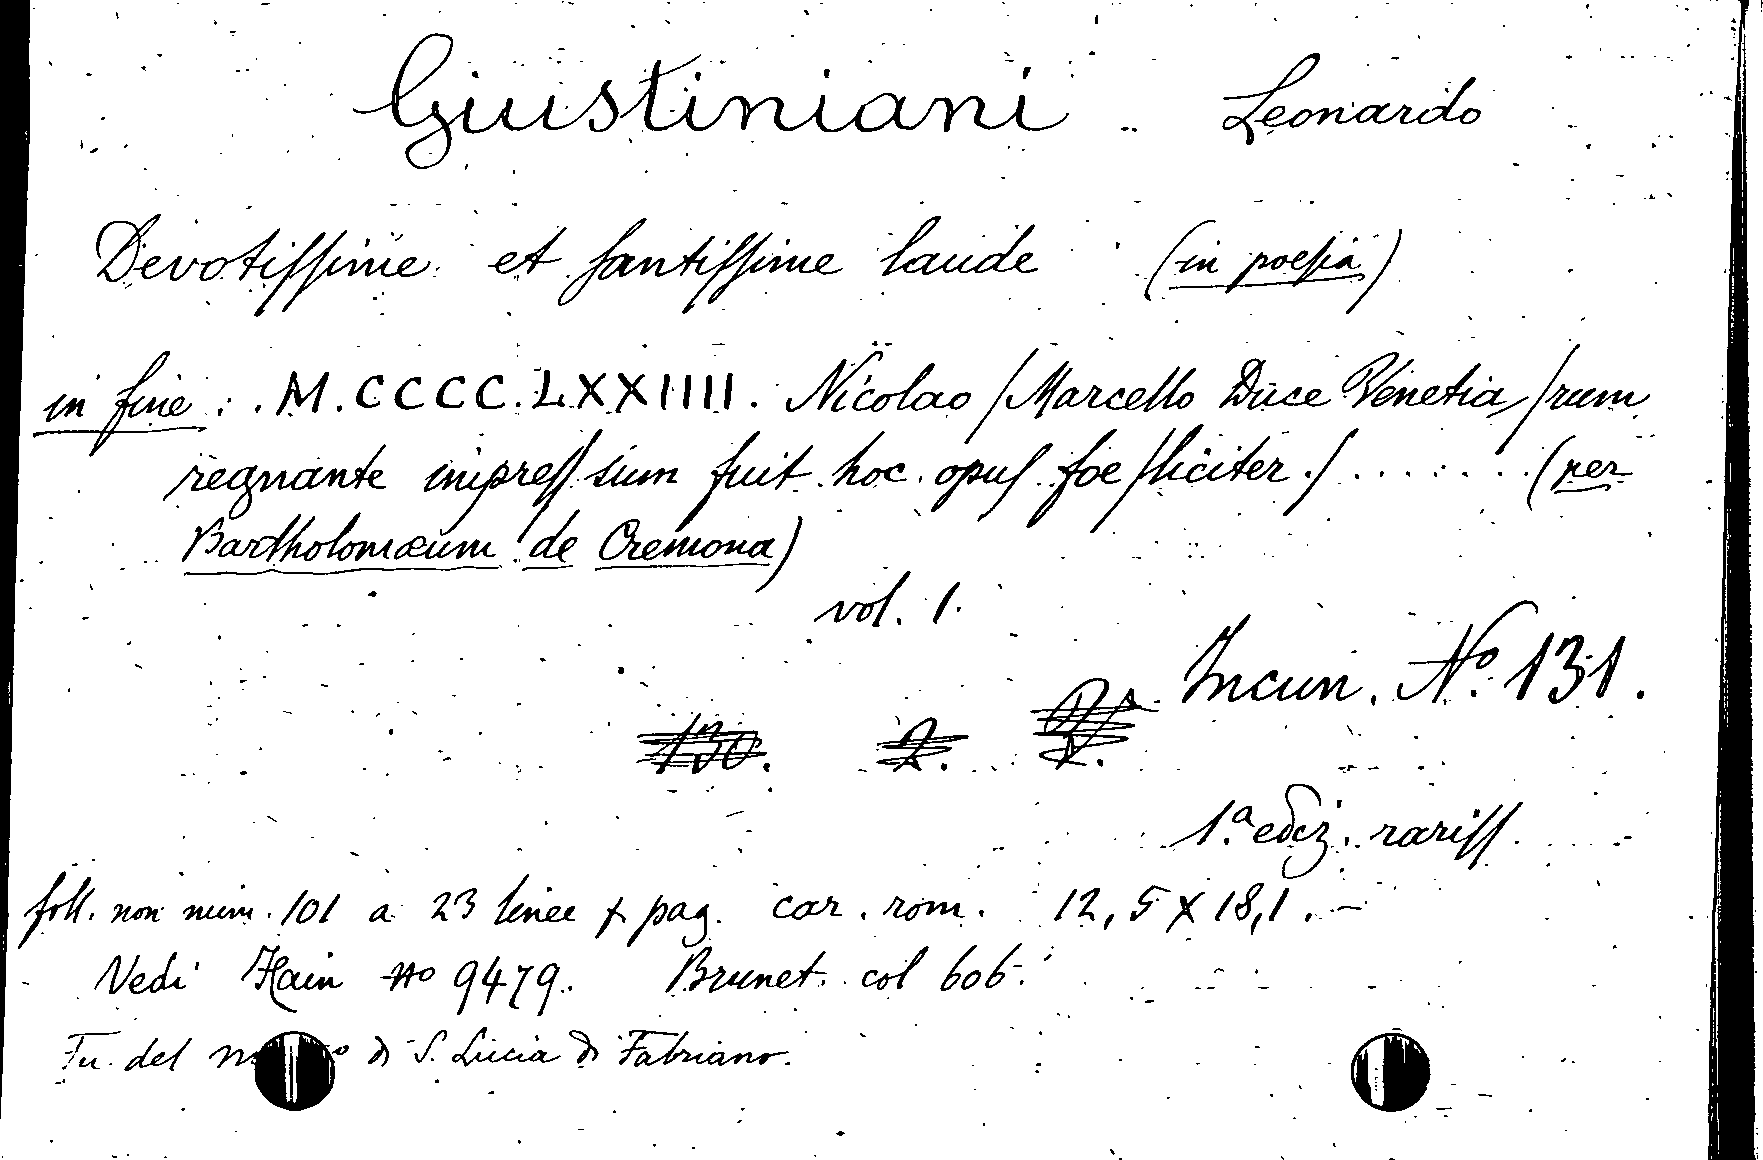 Giustiniani Leonardo
Devotiſſime et ſantiſſime laude (in poeſia)
in fine : . M.CCCC.LXXIIII. Nicolao / Marcello Duce Venetia / rum
regnante impreſſ sium fuit hoc opuſ foe / liciter. / . . . . . . . (per
Bartholomæum de Cremona)
vol. 1.
Incun. Nº 131.
130. 2.
1.ª ediz. rariſſ.
foll. non num. 101 a 23 linee x pag. car. rom. 12,5 X 18,1. –
Vedi Hain No 9479. Brunet. col 606.
Fu del di S. Lucia di Fabriano.